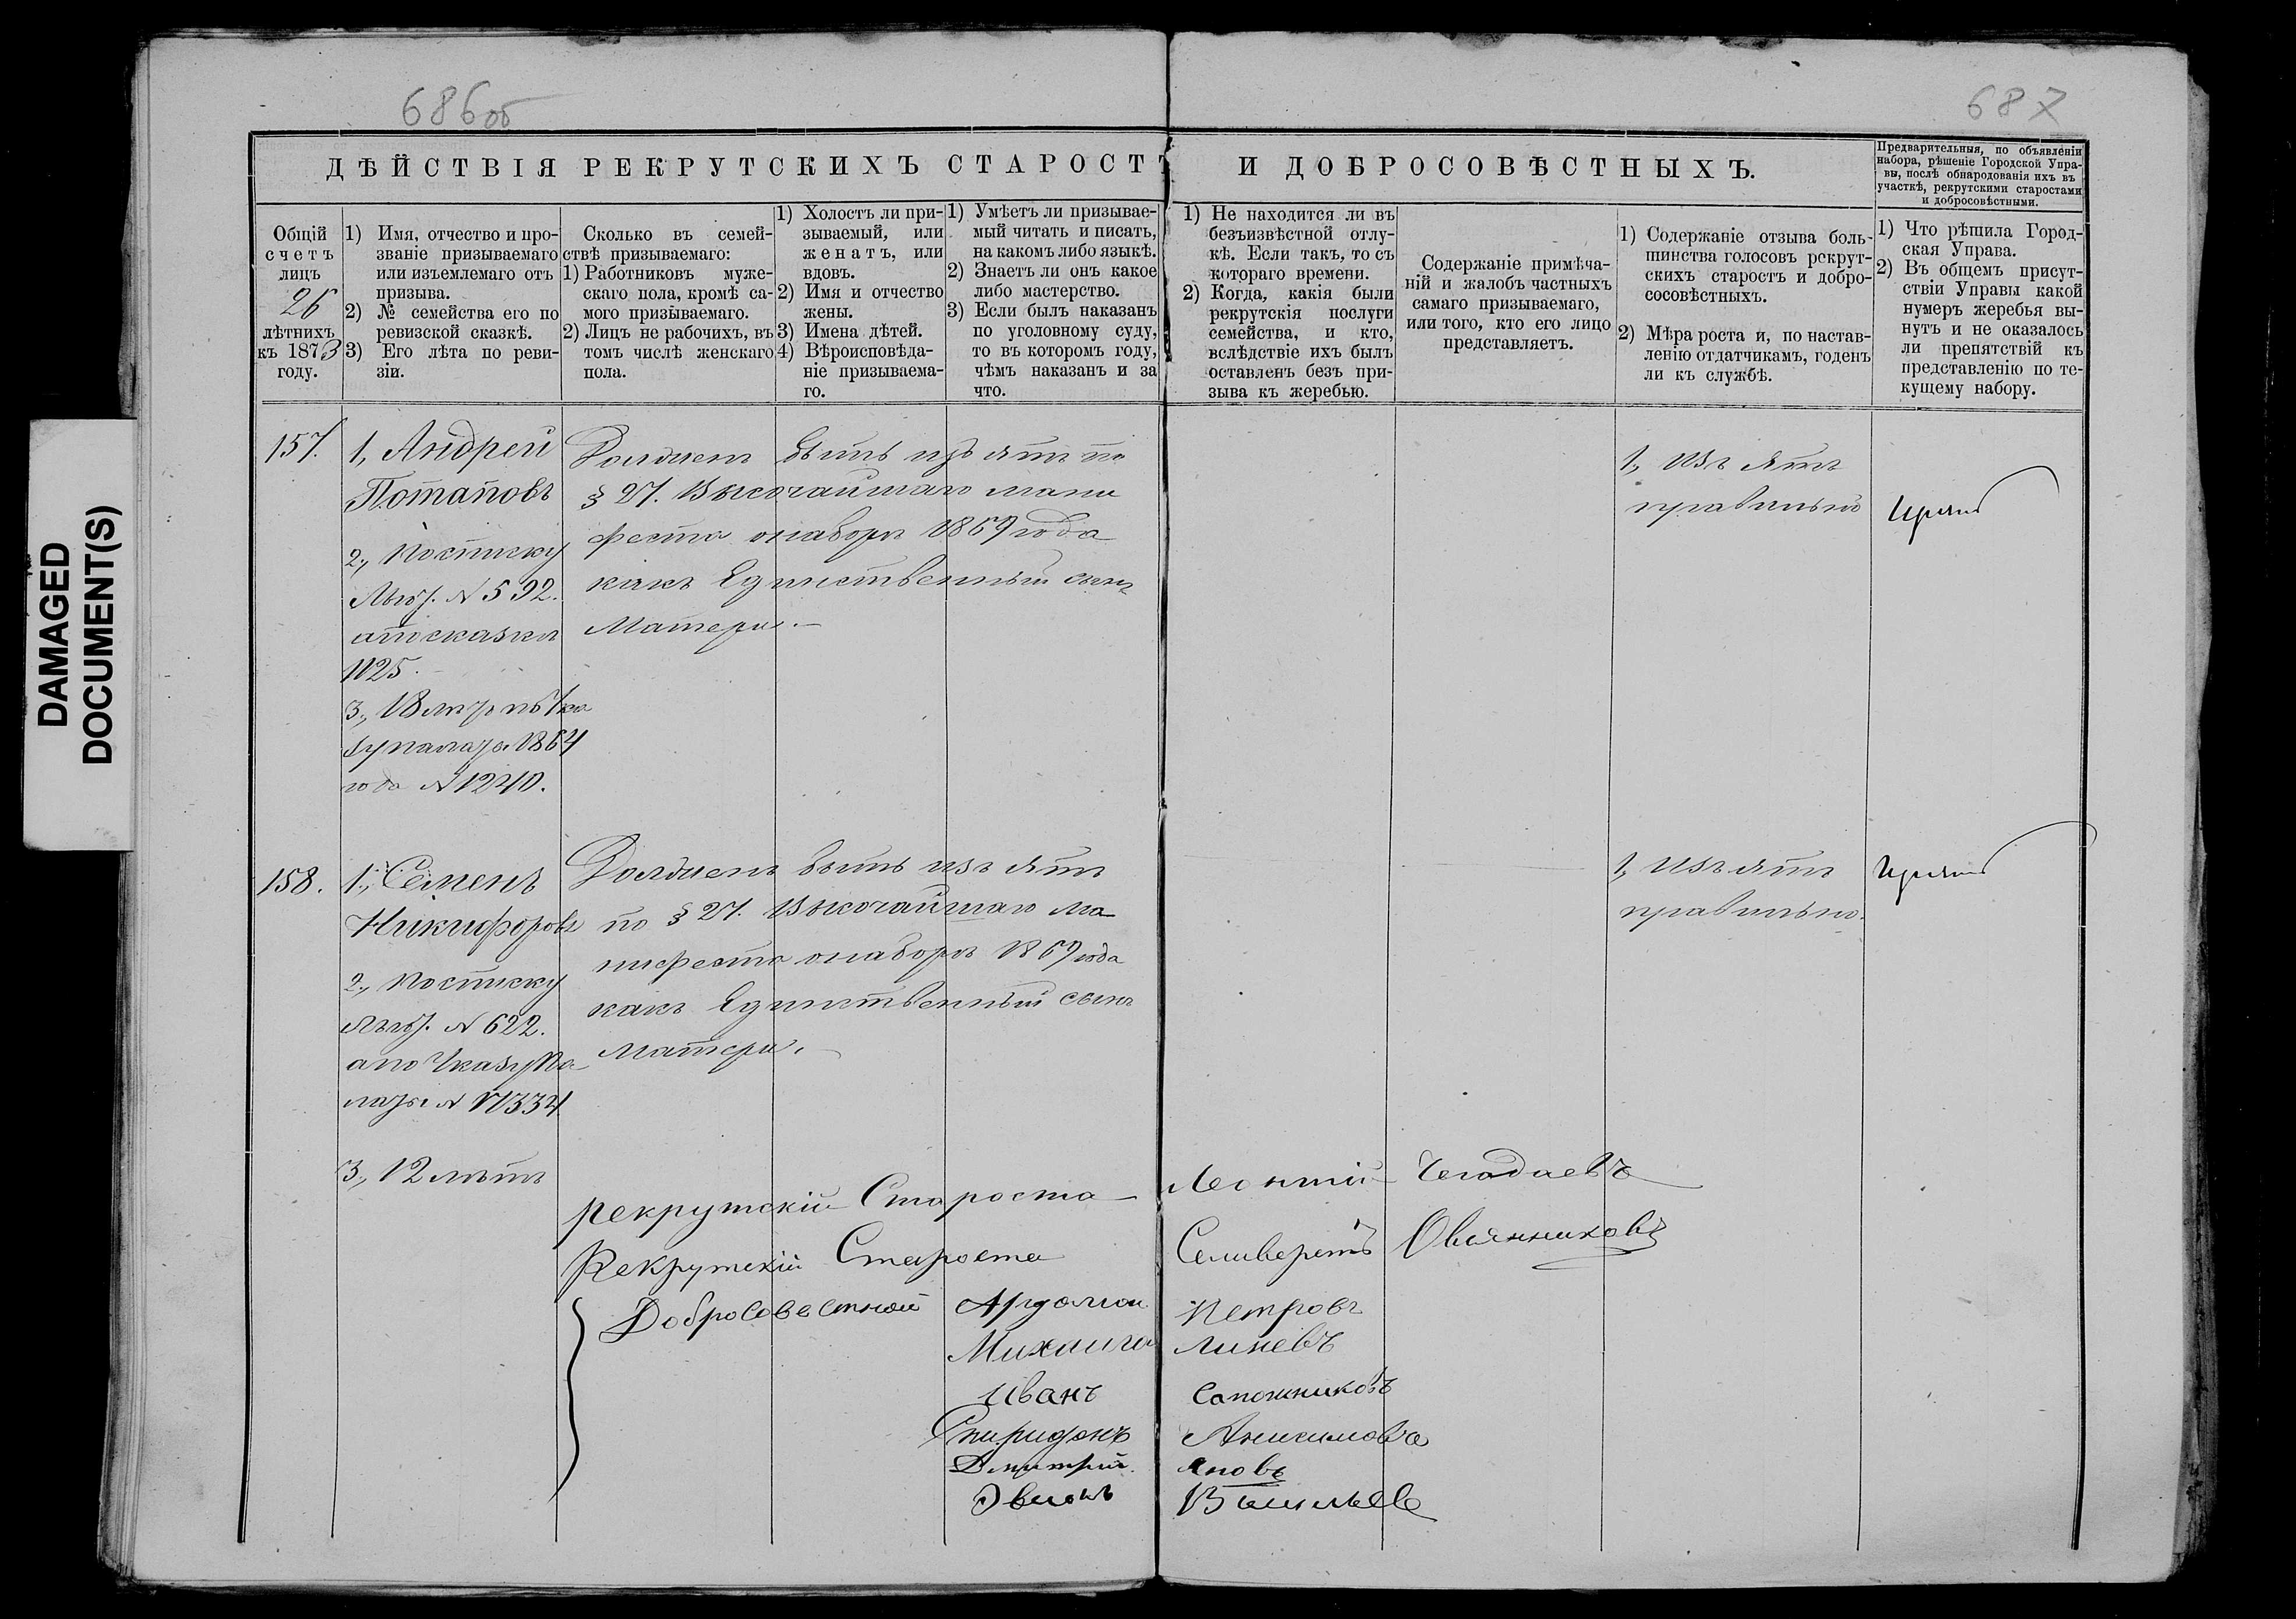 686об
687
DAMAGED
DOCUMENT(S)
ДѢЙСТВІЯ РЕКРУТСКИХЪ СТАРОСТЪ И ДОБРОСОВѢСТНЫХЪ.
Предварительныя, по объявленіи
набора, рѣшеніе Городской Упра-
вы, послѣ обнародованія ихъ въ
участкѣ, рекрутскими старостами
и добросовѣстными.
Общій
счетъ
лицъ
26
лѣтнихъ
къ 1873
году.
1) Имя, отчество и про-
званіе призываемаго
или изъемлемаго отъ
призыва.
2) № семейства его по
ревизской сказкѣ.
3) Его лѣта по реви-
зіи.
Сколько въ семей-
ствѣ призываемаго:
1) Работниковъ муже-
скаго пола, кромѣ са-
мого призываемаго.
2) Лицъ не рабочихъ, въ
томъ числѣ женскаго
пола.
1) Холостъ ли при-
зываемый, или
женатъ, или
вдовъ.
2) Имя и отчество
жены.
3) Имена дѣтей.
4) Вѣроисповѣда-
ніе призываема-
го.
1) Умѣетъ ли призывае-
мый читать и писать,
на какомъ либо языкѣ.
2) Знаетъ ли онъ какое
либо мастерство.
3) Если былъ наказанъ
по уголовному суду,
то въ которомъ году,
чѣмъ наказанъ и за
что.
1) Не находится ли въ
безъизвѣстной отлу-
кѣ. Если такъ, то съ
котораго времени.
2) Когда, какія были
рекрутскія послуги
семейства, и кто,
вслѣдствіе ихъ былъ
оставленъ безъ при-
зыва къ жеребью.
Содержаніе примѣча-
ній и жалобъ частныхъ
самаго призываемаго,
или того, кто его лицо
представляетъ.
1) Содержаніе отзыва боль-
шинства голосовъ рекрут-
скихъ старостъ и добро-
сосовѣстныхъ.
2) Мѣра роста и, по настав-
ленію отдатчикамъ, годенъ
ли къ службѣ.
1) Что рѣшила Город-
ская Управа.
2) Въ общемъ присут-
ствіи Управы какой
нумеръ жеребья вы-
нутъ и не оказалось
ли препятствій къ
представленію по те-
кущему набору.
157.
1, Андрей
Потаповъ
2, по списку
№ 592.
а по сказкѣ
1125.
3, 18
1864
года № 1240.
Долженъ быть изъятъ по
§ 27. Высочайшаго мани
феста о наборѣ 1869 года
какъ Единственный сынъ
Матери.
1, изъятъ
правильно
158.
1, Семенъ
Никифоровъ
2, по списку
№ 622.
а по Указу Па
латы №
3, 12 лѣтъ
Долженъ быть изъятъ
по § 27. Высочайшаго ма
нифеста о наборѣ 1869 года
какъ Единственный сынъ
матери.
1, изъятъ
правильно.
рекрутскій Староста Леонтій Чегодаевъ
Рекрутскій Староста Селиверстъ Овсянниковъ
Добросовестной Петровъ
Михаила Линевъ
Иванъ Сапожниковъ
Спиридонъ Анисимова
Дмитрій Яновъ
Васильевъ